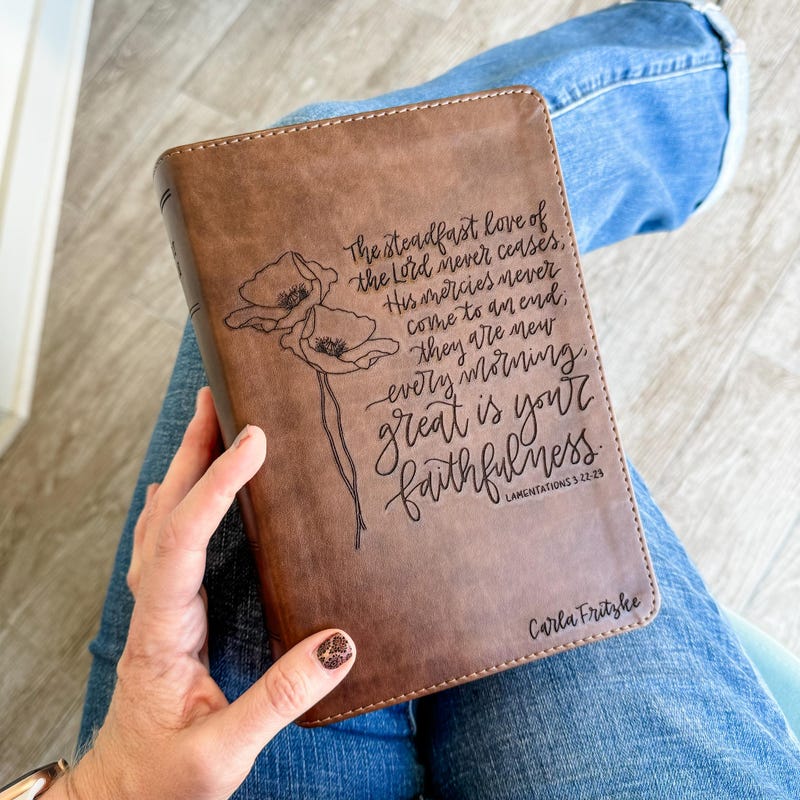 The steadfast love of
the Lord never ceases,
His mercies never
come to an end,
they are new
every morning,
great is your
faithfulness.
LAMENTATIONS 3:22-23
Carla Fritzke